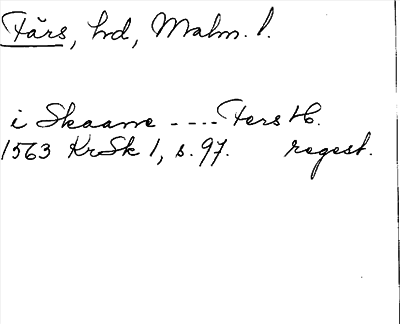 Färs, hd, Malm. l.
i Skaane ---- Fers H.
1563 KrSk 1, s. 97. regest.